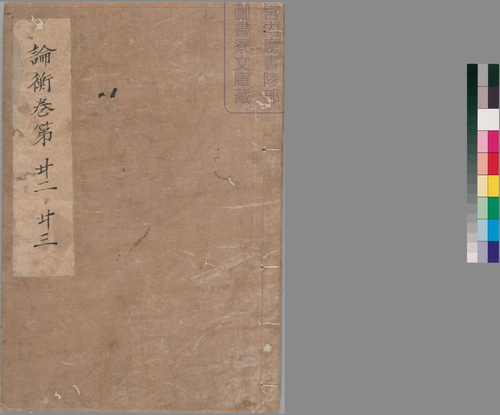 宮内廳書陵部
圖書寮文庫藏
論衡卷第 廿二 廿三